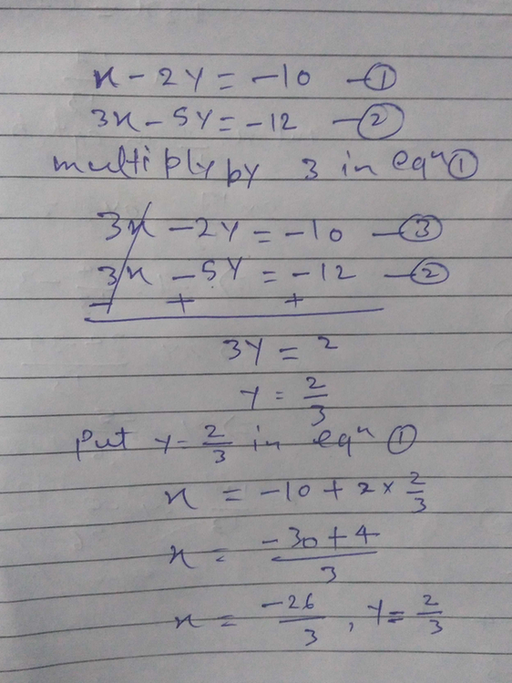 x - 2y = -10 —①
3x - 5y = -12 —②
multiply by 3 in eqⁿ ①
3x - 2y = -10 —③
3x - 5y = -12 —②
- + +
3y = 2
y = 2/3
Put y - 2/3 in eqⁿ ①
x = -10 + 2 × 2/3
x = (-30 + 4)/3
x = -26/3, y = 2/3